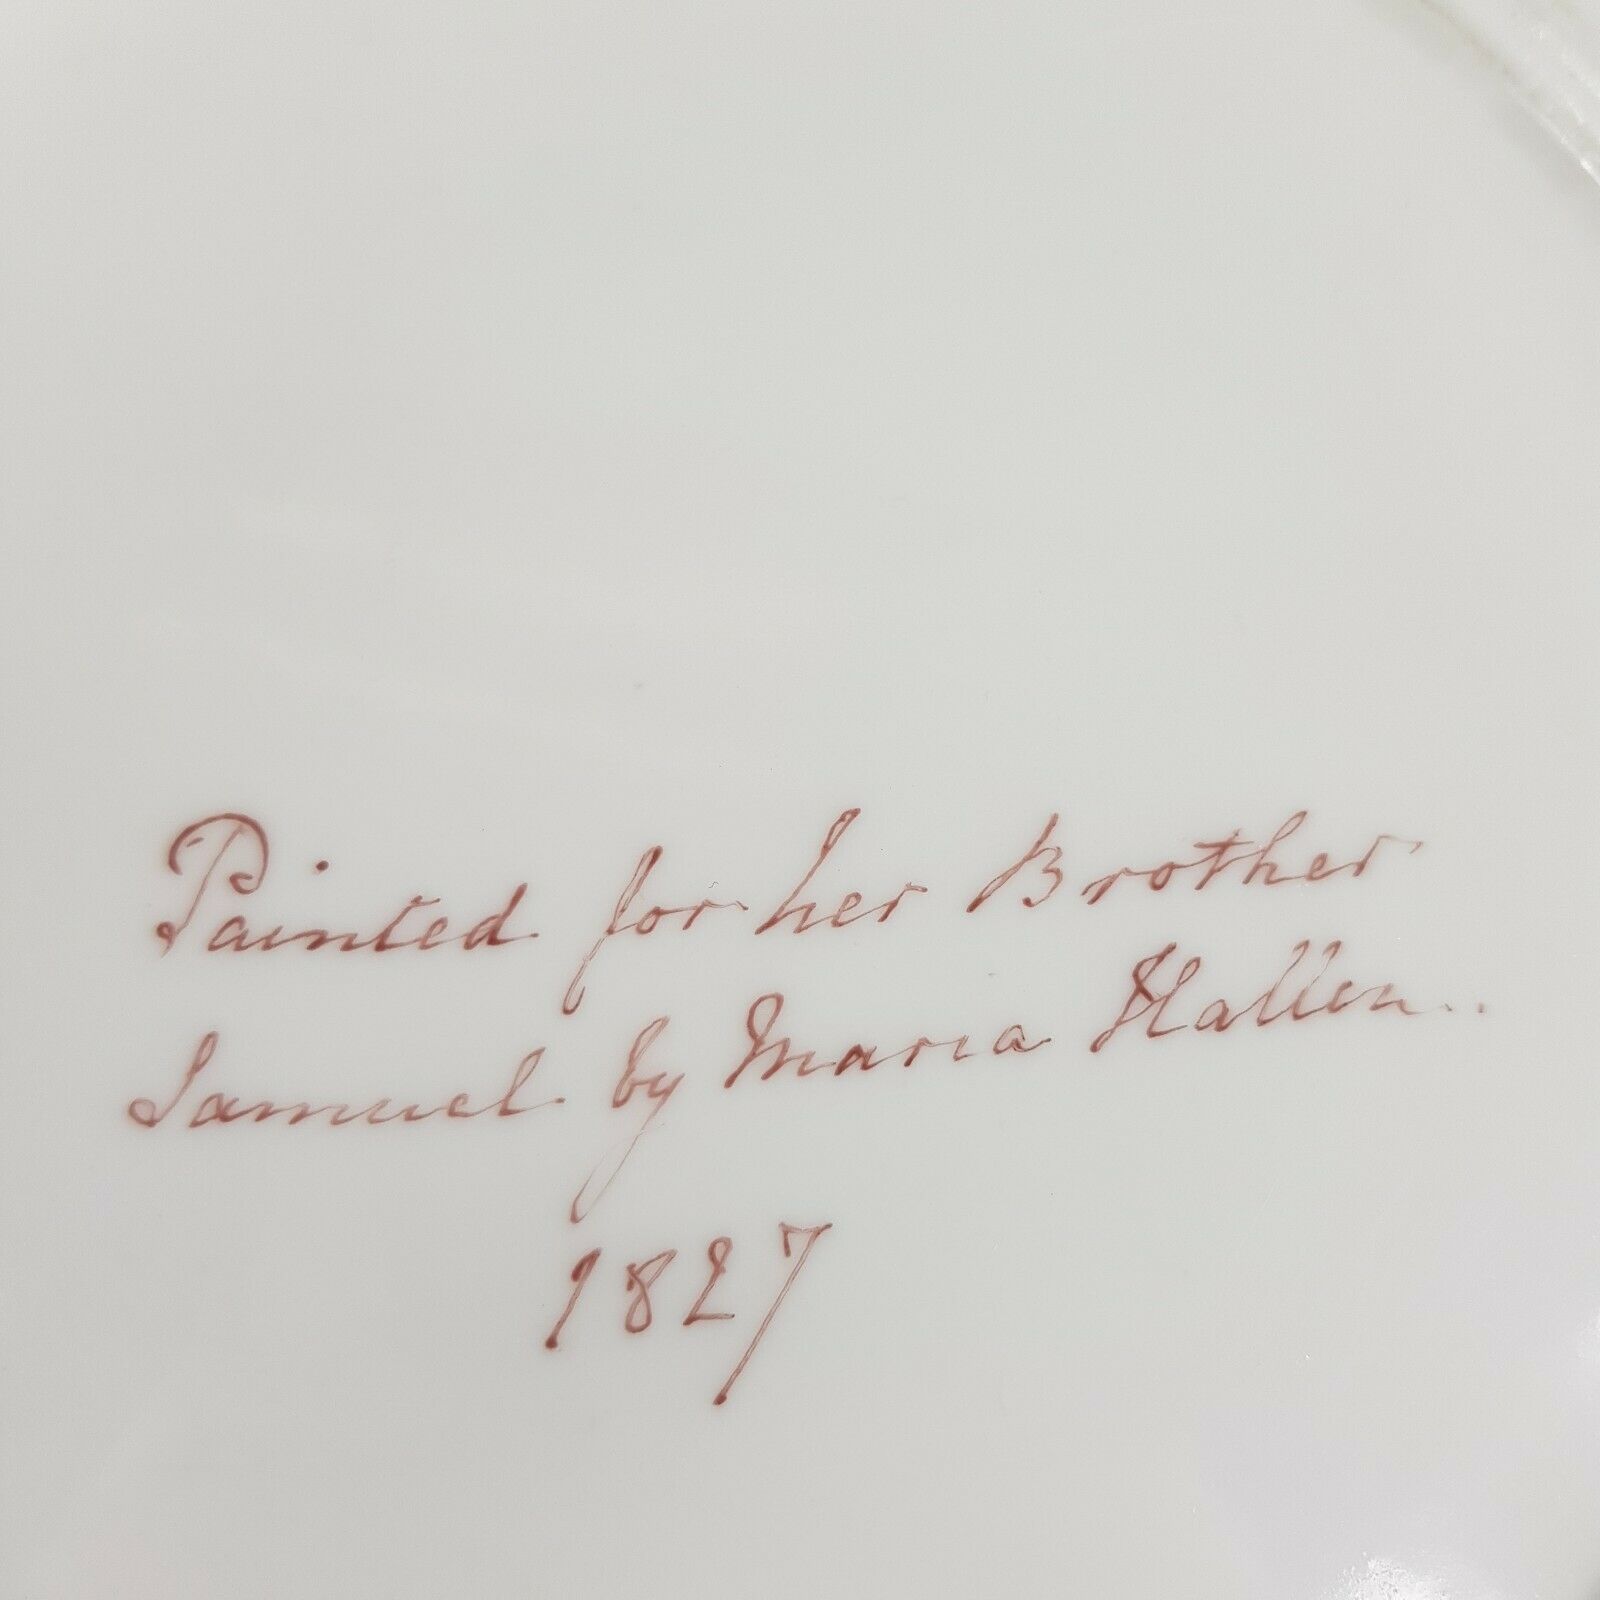 Painted for her Brother
Samuel by Maria Hallen..
1827